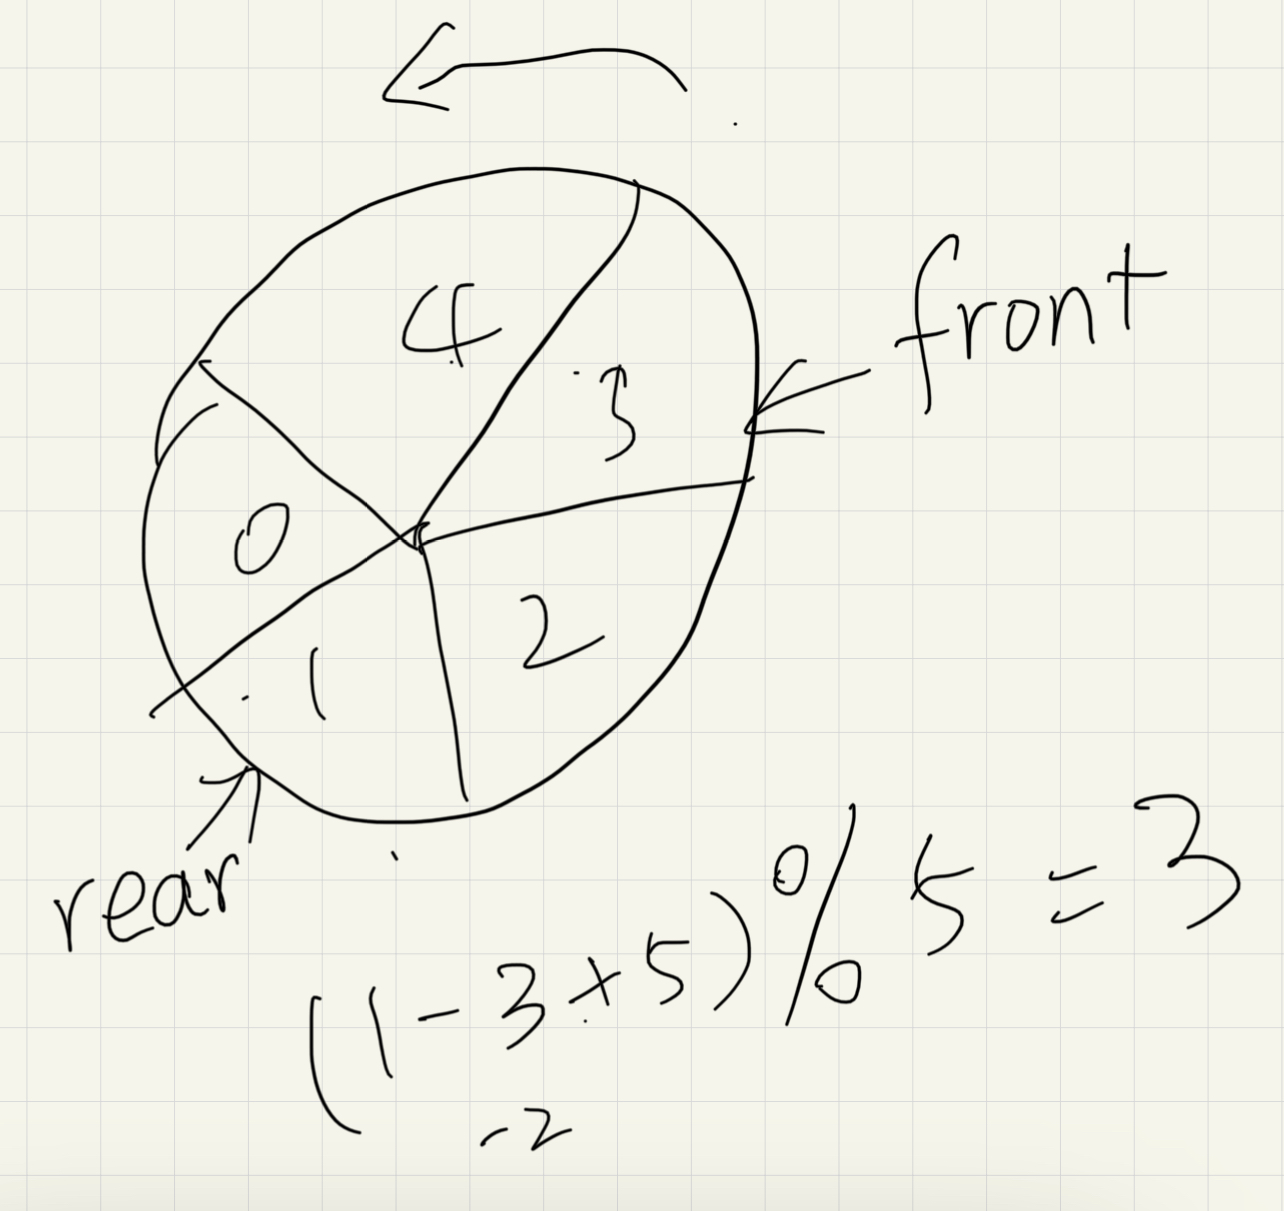 front
4
3
0
2
1
rear
(1-3+5)%5=3
-2